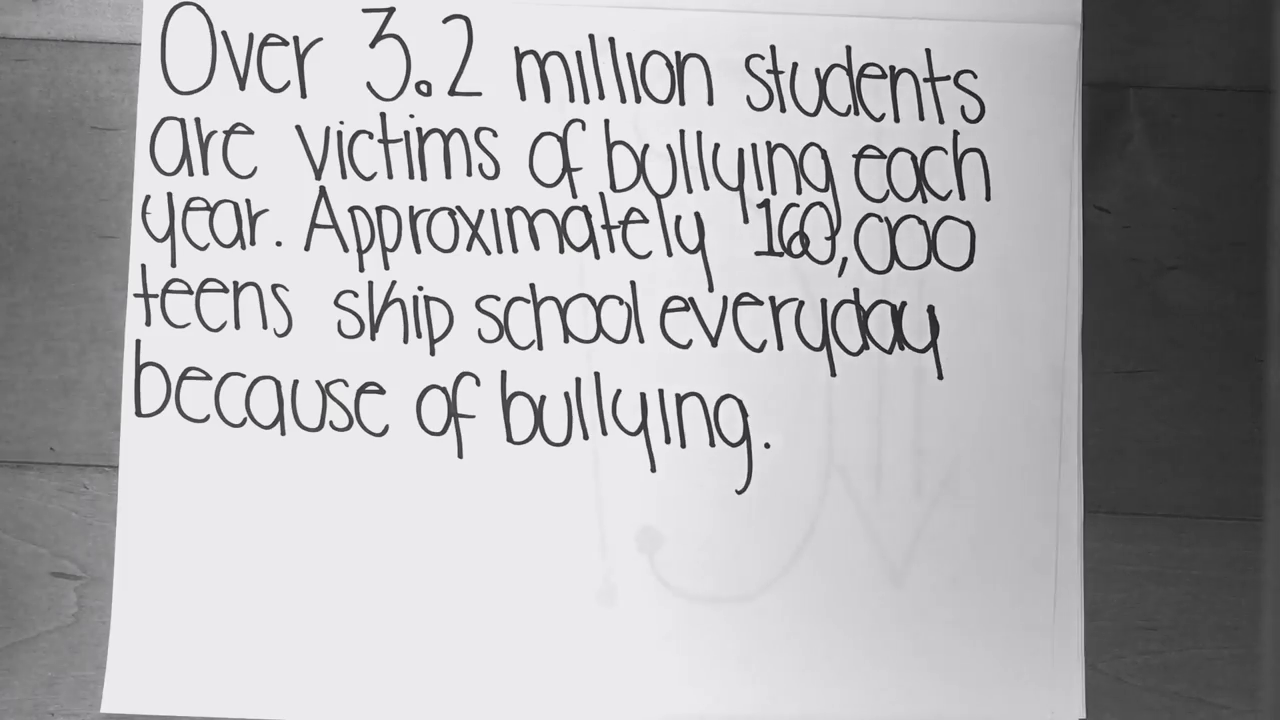 Over 3.2 million students
are victims of bullying each
year. Approximately 160,000
teens skip school everyday
because of bullying.